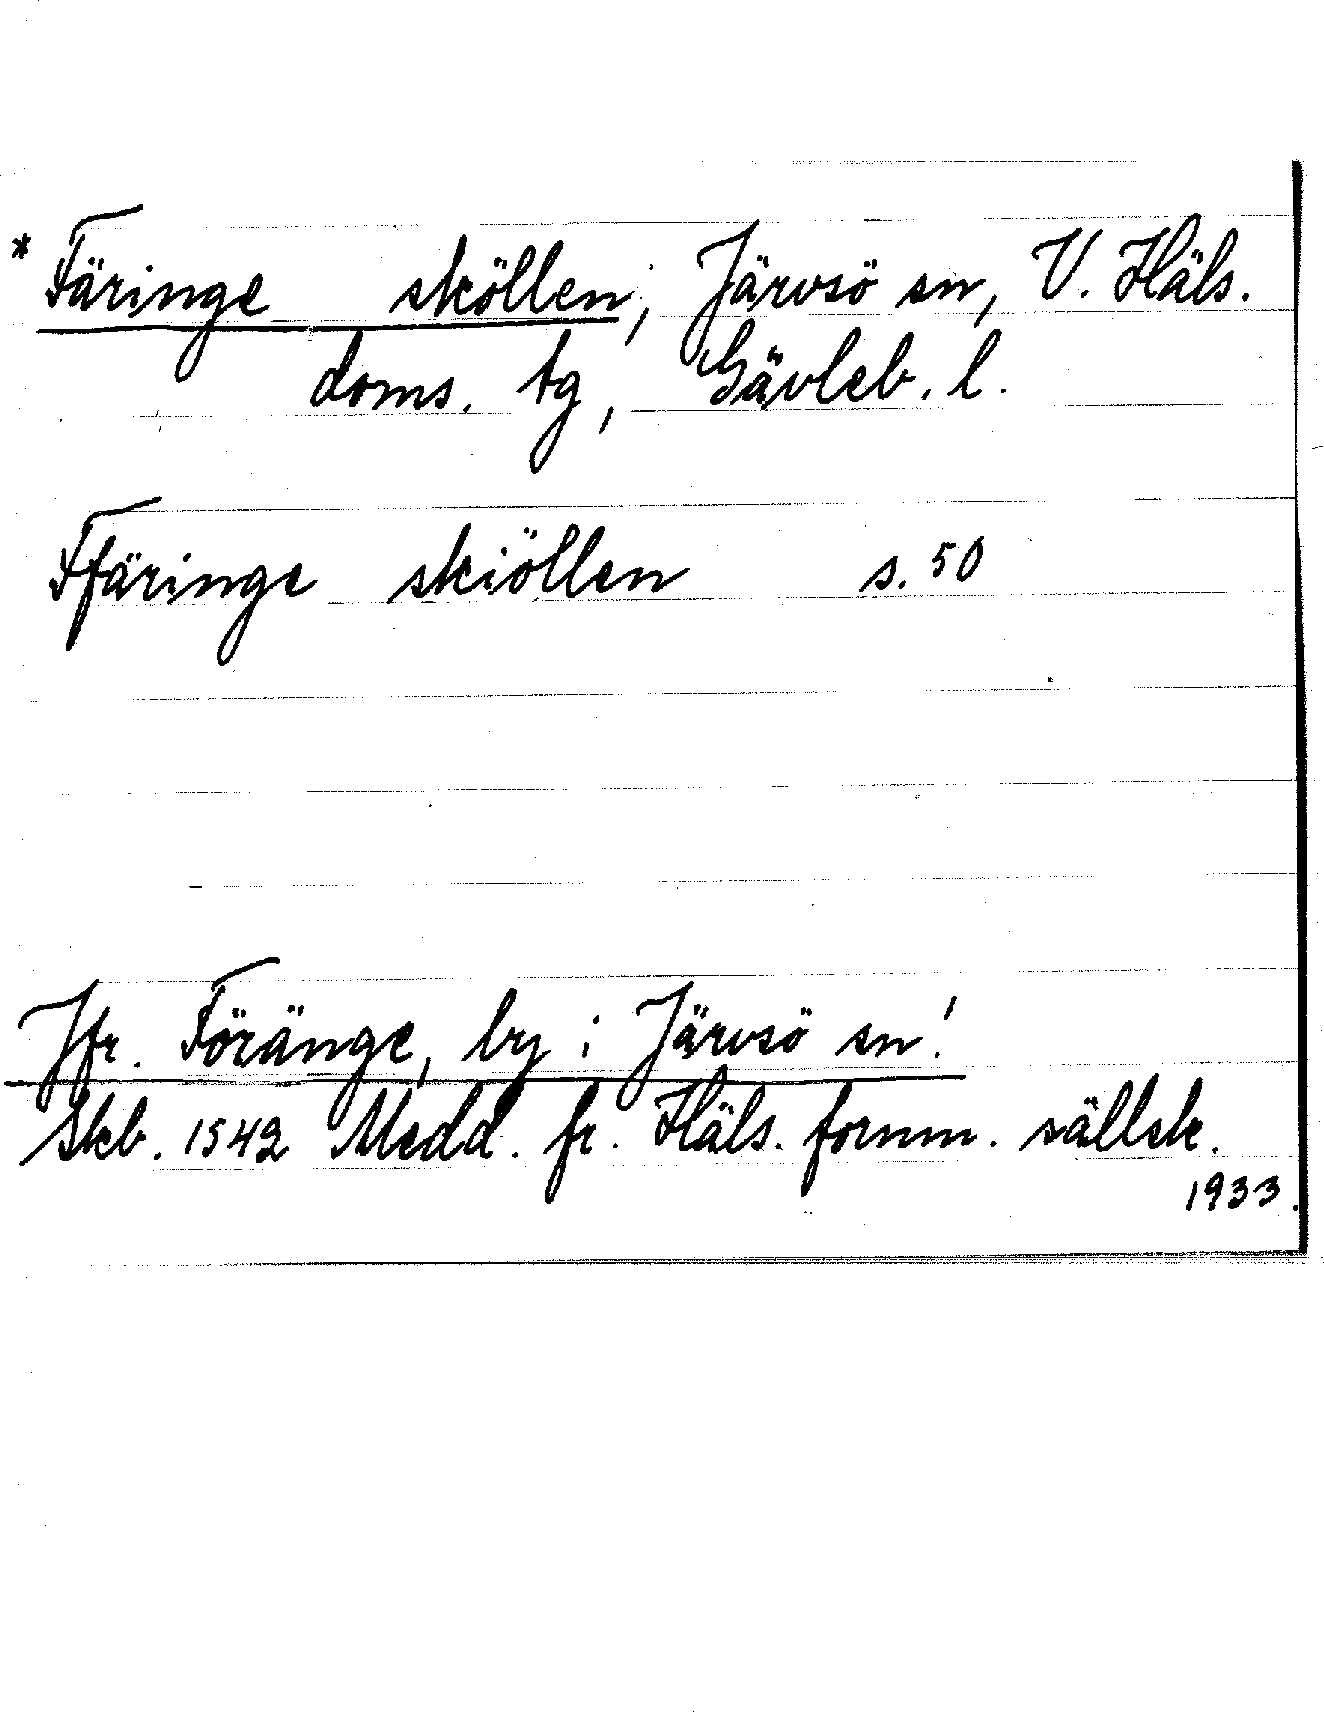 * Färinge sköllen, i Järvsö sn, V. Häls.
doms. tg, Gävleb. l.
Ffäringe skiöllen s. 50
Jfr. Föränge, by i Järvsö sn!
Skb. 1542 Medd. fr. Häls. fornm. sällsk.
1933.